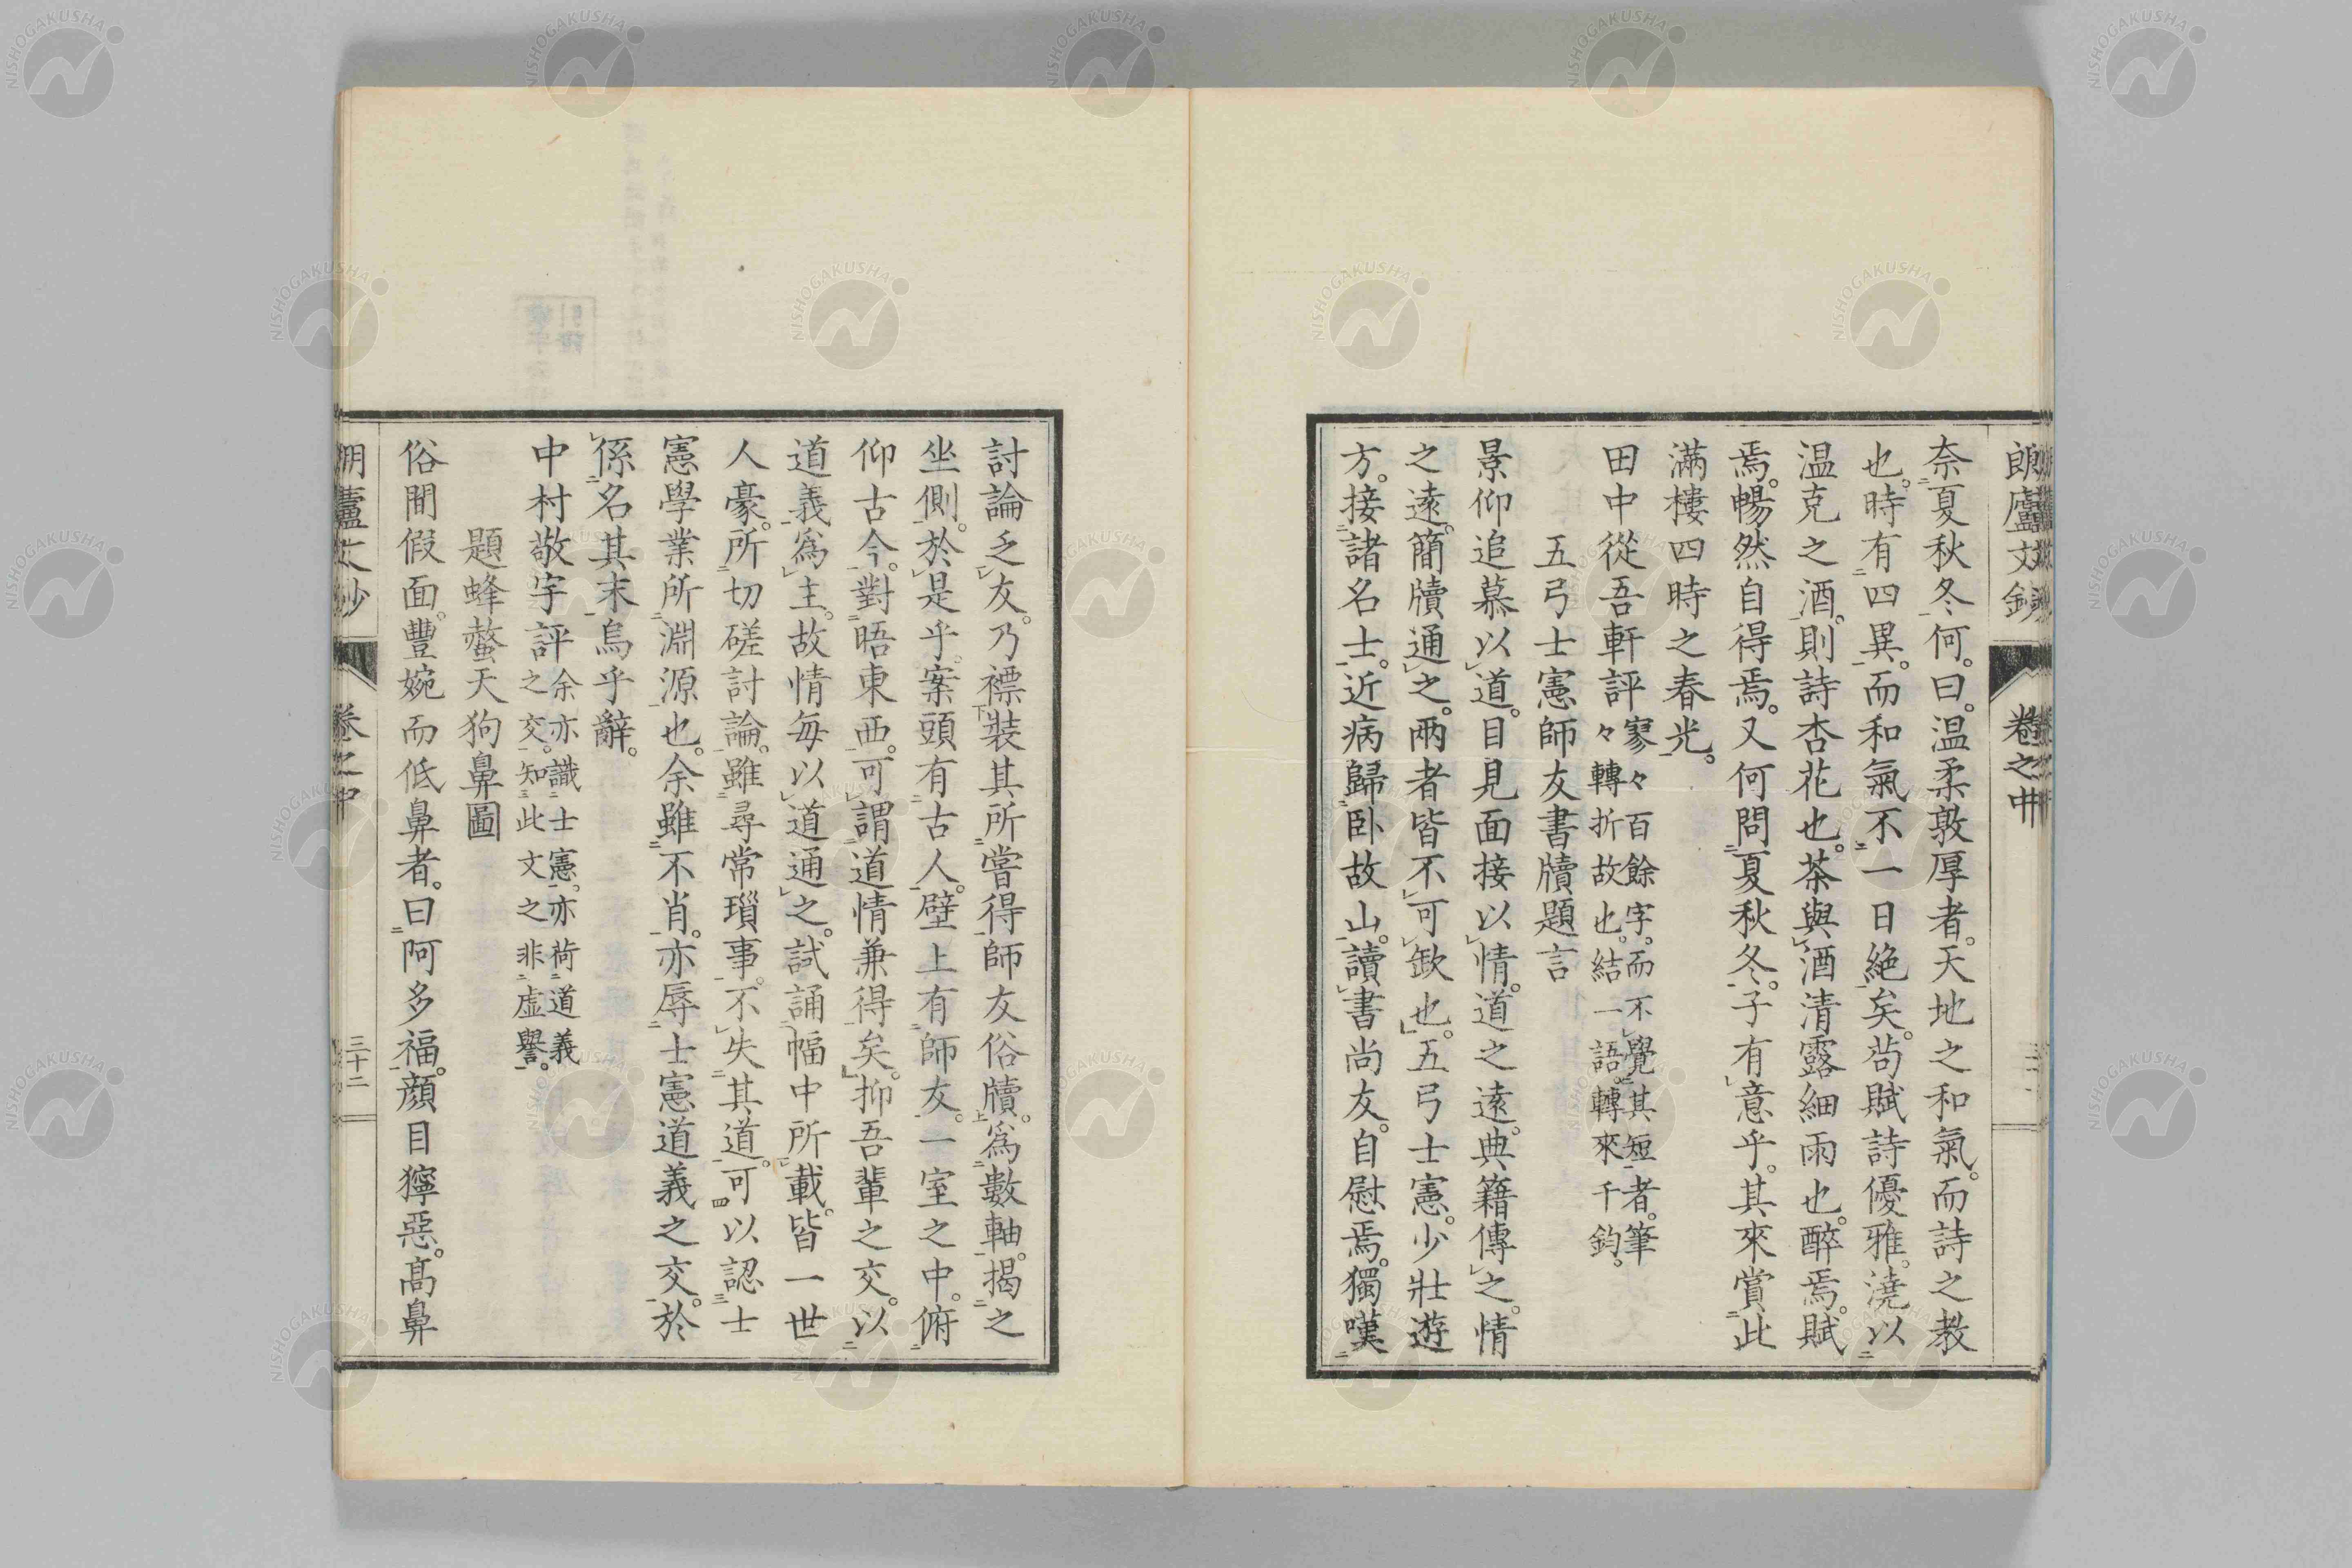 朗廬文鈔
卷之中
奈夏秋冬何。曰。温柔敦厚者。天地之和氣。而詩之教
也。時有四異。而和氣不一日絶矣。苟賦詩優雅。澆以
温克之酒。則詩杏花也。茶與酒清露細雨也。醉焉。賦
焉。暢然自得焉。又何問夏秋冬。子有意乎。其來賞此
滿樓四時之春光。
田中從吾軒評
寥々百餘字。而不覺其短者。筆
々轉折故也。結一語。轉來千鈞。
五弓士憲師友書牘題言
景仰追慕以道。目見面接以情。道之遠。典籍傳之。情
之遠。簡牘通之。兩者皆不可欽也。五弓士憲。少壯遊
方。接諸名士。近病歸臥故山。讀書尚友。自慰焉。獨嘆
討論乏友。乃褾裝其所嘗得師友俗牘。爲數軸。揭之
坐側。於是乎。案頭有古人。壁上有師友。一室之中。俯
仰古今。對晤東西。可謂道情兼得矣。抑吾輩之交。以
道義爲主。故情每以道通之。試誦幅中所載。皆一世
人豪。所切磋討論。雖尋常瑣事。不失其道。可以認士
憲學業所淵源也。余雖不肖。亦辱士憲道義之交。於
係名其末。烏乎辭。
中村敬宇評
余亦識士憲。亦荷道義
之交。知此文之非虛譽。
題蜂螫天狗鼻圖
俗間假面。豐婉而低鼻者。曰阿多福。顏目獰惡。高鼻
朗廬文鈔
卷之中
三十二
NISHOGAKUSHA